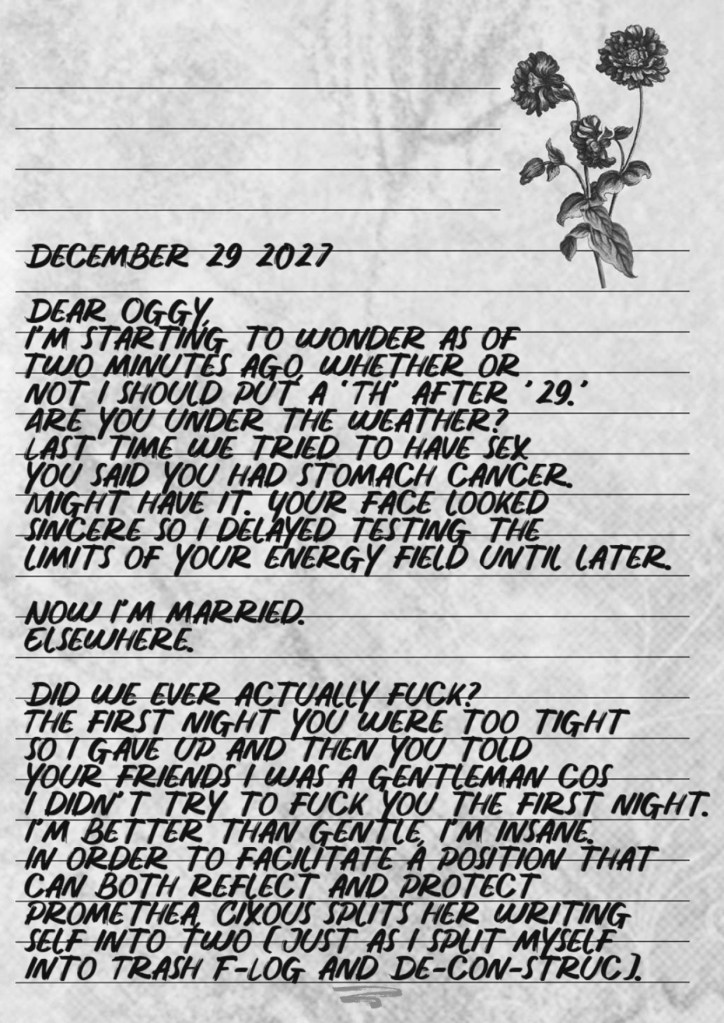 DECEMBER 29 2027
DEAR OGGY,
I'M STARTING TO WONDER AS OF
TWO MINUTES AGO, WHETHER OR
NOT I SHOULD PUT A 'TH' AFTER '29.'
ARE YOU UNDER THE WEATHER?
LAST TIME WE TRIED TO HAVE SEX
YOU SAID YOU HAD STOMACH CANCER.
MIGHT HAVE IT. YOUR FACE LOOKED
SINCERE SO I DELAYED TESTING THE
LIMITS OF YOUR ENERGY FIELD UNTIL LATER.
NOW I'M MARRIED.
ELSEWHERE.
DID WE EVER ACTUALLY FUCK?
THE FIRST NIGHT YOU WERE TOO TIGHT
SO I GAVE UP AND THEN YOU TOLD
YOUR FRIENDS I WAS A GENTLEMAN COS
I DIDN'T TRY TO FUCK YOU THE FIRST NIGHT.
I'M BETTER THAN GENTLE, I'M INSANE.
IN ORDER TO FACILITATE A POSITION THAT
CAN BOTH REFLECT AND PROTECT
PROMETHEA, CIXOUS SPLITS HER WRITING
SELF INTO TWO (JUST AS I SPLIT MYSELF
INTO TRASH F-LOG AND DE-CON-STRUC).